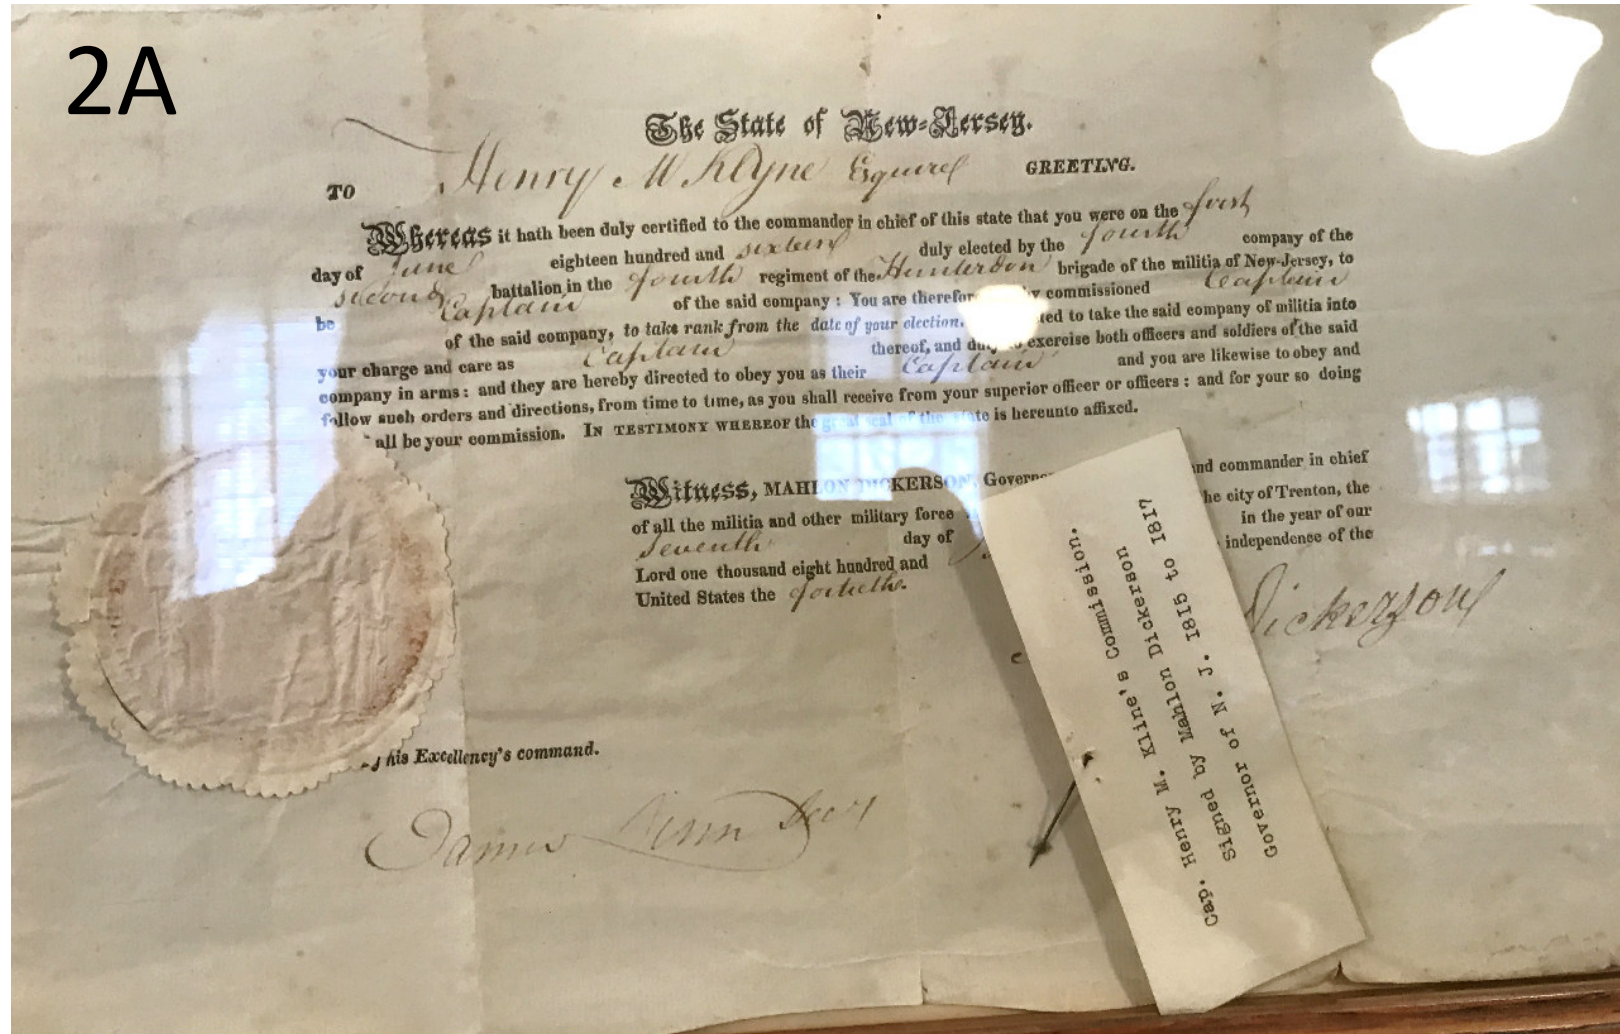 2A
The State of New-Jersey.
TO Henry M Klyne Esquire GREETING.
Whereas it hath been duly certified to the commander in chief of this state that you were on the first
day of June eighteen hundred and sixteen duly elected by the fourth company of the
second battalion in the fourth regiment of the Hunterdon brigade of the militia of New-Jersey, to
be Captain of the said company: You are therefor y commissioned Captain
of the said company, to take rank from the date of your election. ted to take the said company of militia into
your charge and care as Captain thereof, and duly to exercise both officers and soldiers of the said
company in arms: and they are hereby directed to obey you as their Captain and you are likewise to obey and
follow such orders and directions, from time to time, as you shall receive from your superior officer or officers: and for your so doing
all be your commission. IN TESTIMONY WHEREOF the great seal of the state is hereunto affixed.
Witness, MAHLON DICKERSON, Governo nd commander in chief
of all the militia and other military force he city of Trenton, the
seventh day of in the year of our
Lord one thousand eight hundred and independence of the
United States the fortieth.
Dickerson
his Excellency's command.
James Linn Secy
Cap. Henry M. Kline's Commission.
Signed by Mahlon Dickerson
Governor of N. J. 1815 to 1817